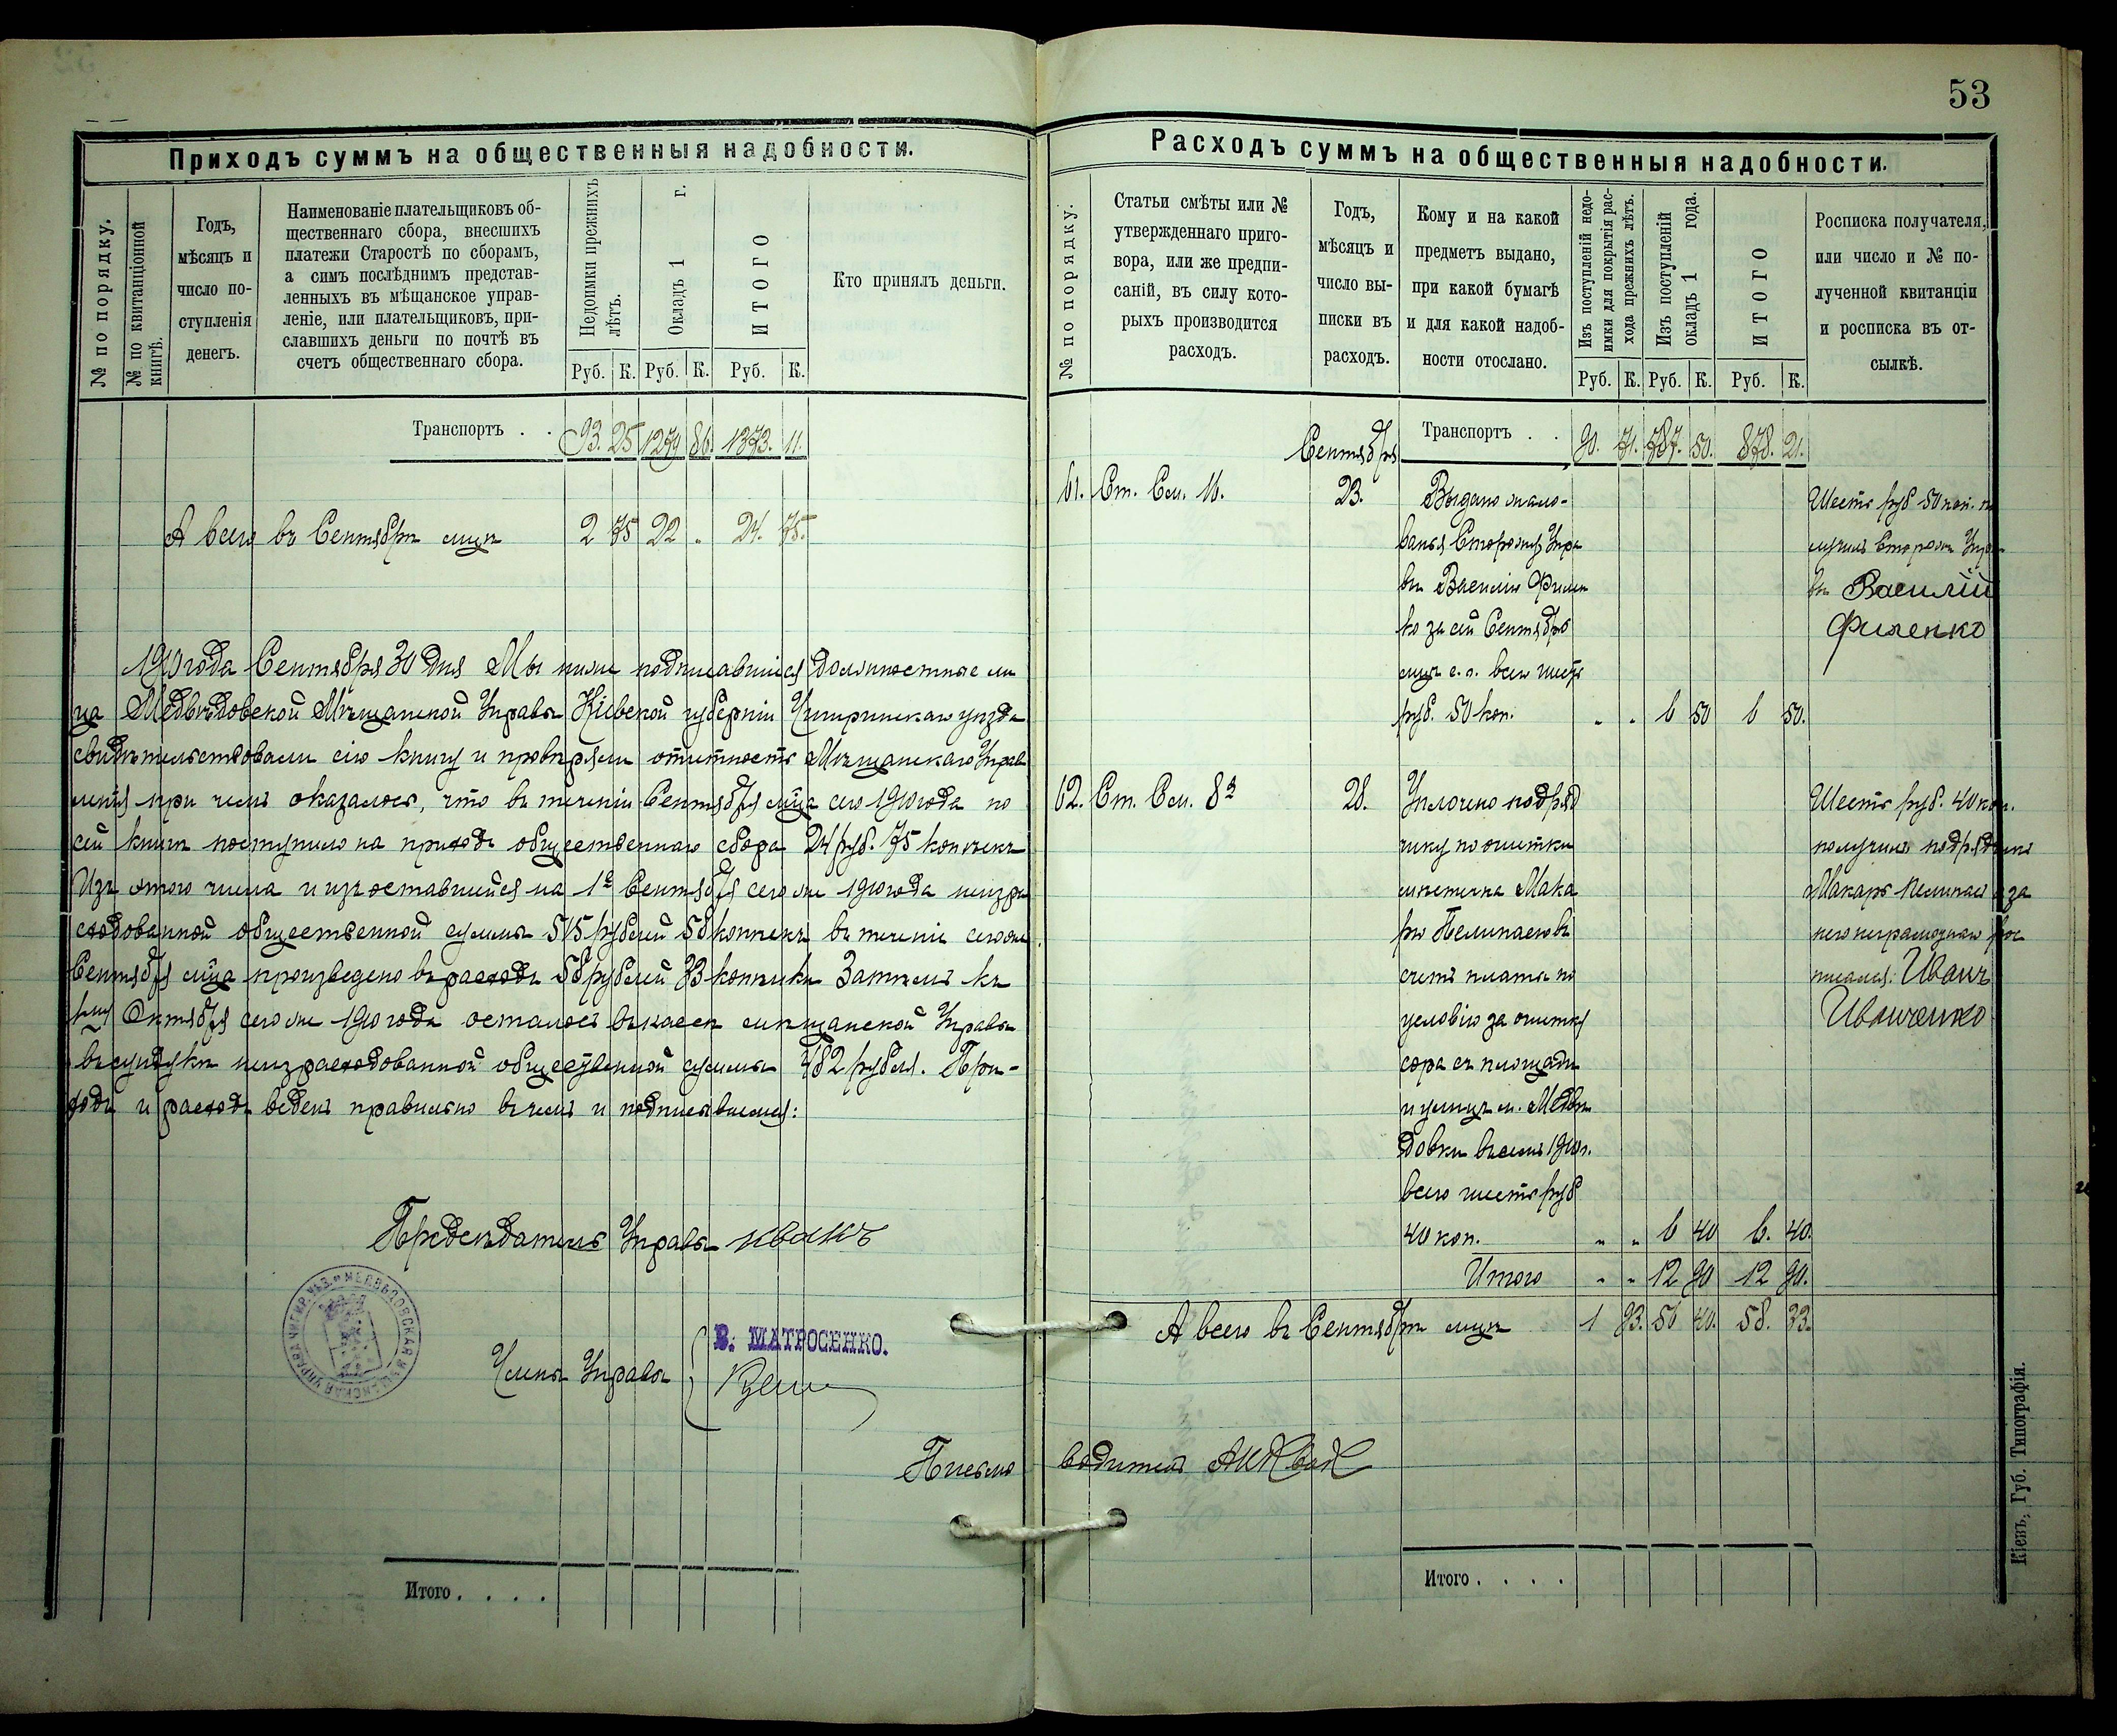 53
Приходъ суммъ на общественныя надобности.
№ по порядку.
№ по квитанціонной
книгѣ.
Годъ,
мѣсяцъ и
число по-
ступленія
денегъ.
Наименованіе плательщиковъ об-
щественнаго сбора, внесшихъ
платежи Старостѣ по сборамъ,
а симъ послѣднимъ представ-
ленныхъ въ мѣщанское управ-
леніе, или плательщиковъ, при-
славшихъ деньги по почтѣ въ
счетъ общественнаго сбора.
Недоимки прежнихъ
лѣтъ.
Окладъ 1 г.
ИТОГО
Руб. К. Руб. К. Руб. К.
Кто принялъ деньги.
Транспортъ . . 93. 25 1279 86. 1373. 11.
А всего въ Сентябрѣ м-цѣ 2 75 22 „ 24. 75.
1910 года Сентября 30 дня Мы ниже подписавшіеся должностные ли
ца Медвѣдовской Мѣщанской Управы Кіевской губерніи Чигиринскаго уѣзда
свидѣтельствовали сію книгу и провѣряли отчетность Мѣщанскаго Управ
ленія при чемъ оказалось, что въ теченіи Сентября м-ца сего 1910 года по
сей книгѣ поступило на приходъ общественнаго сбора 24 руб. 75 копѣекъ
Изъ этого числа и изъ оставшейся на 1е Сентября сего же 1910 года неизра
сходованной общественной суммы 515 рублей 58 копѣекъ въ теченіе сего же
Сентября м-ца произведено въ расходъ 58 рублей 33 копѣйки Затѣмъ къ
1му Октября сего же 1910 года осталось въ кассѣ мѣщанской Управы
въ сундукѣ неизрасходованной общественной суммы 482 рубля. При-
ходъ и расходъ веденъ правильно въ чемъ и подписываемся:
Предсѣдатель Управы Квакъ
МЕДВѢДОВСКАЯ МѢЩАНСКАЯ УПРАВА ЧИГИР. УѢЗ.
Члены Управы
В. МАТРОСЕНКО.
Письмо водитель
Итого . . . .
Расходъ суммъ на общественныя надобности.
№ по порядку.
Статьи смѣты или №
утвержденнаго приго-
вора, или же предпи-
саній, въ силу кото-
рыхъ производится
расходъ.
Годъ,
мѣсяцъ и
число вы-
писки въ
расходъ.
Кому и на какой
предметъ выдано,
при какой бумагѣ
и для какой надоб-
ности отослано.
Изъ поступленій недо-
имки для покрытія рас-
хода прежнихъ лѣтъ.
Изъ поступленій
окладъ 1 года.
ИТОГО
Руб. К. Руб. К. Руб. К.
Росписка получателя,
или число и № по-
лученной квитанціи
и росписка въ от-
сылкѣ.
Транспортъ . . 90. 71. 787. 50. 878. 21.
Сентября
61. Ст. См. 16. 23. Выдано жало-
ванья Сторожу Упра
вы Василію Филен
ко за сей Сентябрь
м-цъ с. г. всего шесть
руб. 50 коп. „ „ 6 50 6 50.
Шесть руб 50 коп. по
лучилъ Сторожъ Упра
вы Василій
Филенко
62. Ст. См. 8я 28. Уплочено подряд
чику по очистки
мѣстечка Мака
ру Пелипасю въ
счетъ платы по
условію за очистку
сора съ площади
и улицъ м. Медвѣ
довки въ семъ 1910 г.
всего шесть руб
40 коп. „ „ 6 40 6. 40.
Шесть руб. 40 коп.
получилъ подрядчикъ
Макаръ Пелипась а за
него неграмотнаго рос
писался: Иванъ
Иванченко
Итого „ „ 12 90 12 90.
А всего въ Сентябрѣ м-цѣ 1 93. 56 40. 58. 33.
Итого . . . .
Кіевъ, Губ. Типографія.